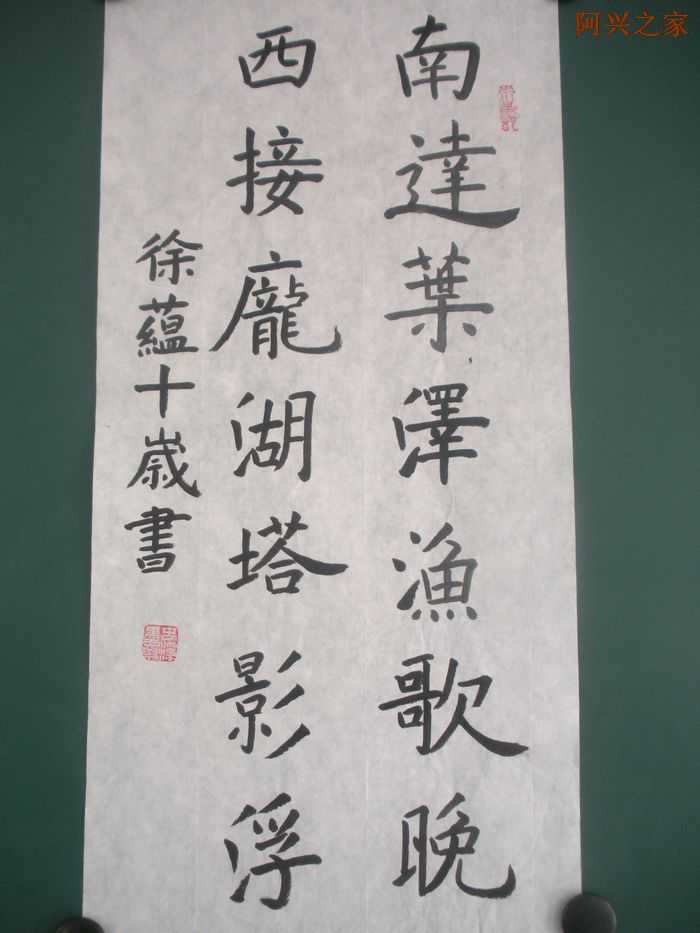 阿兴之家
南達葉澤漁歌晚
西接龐湖塔影浮
徐蘊十歲書